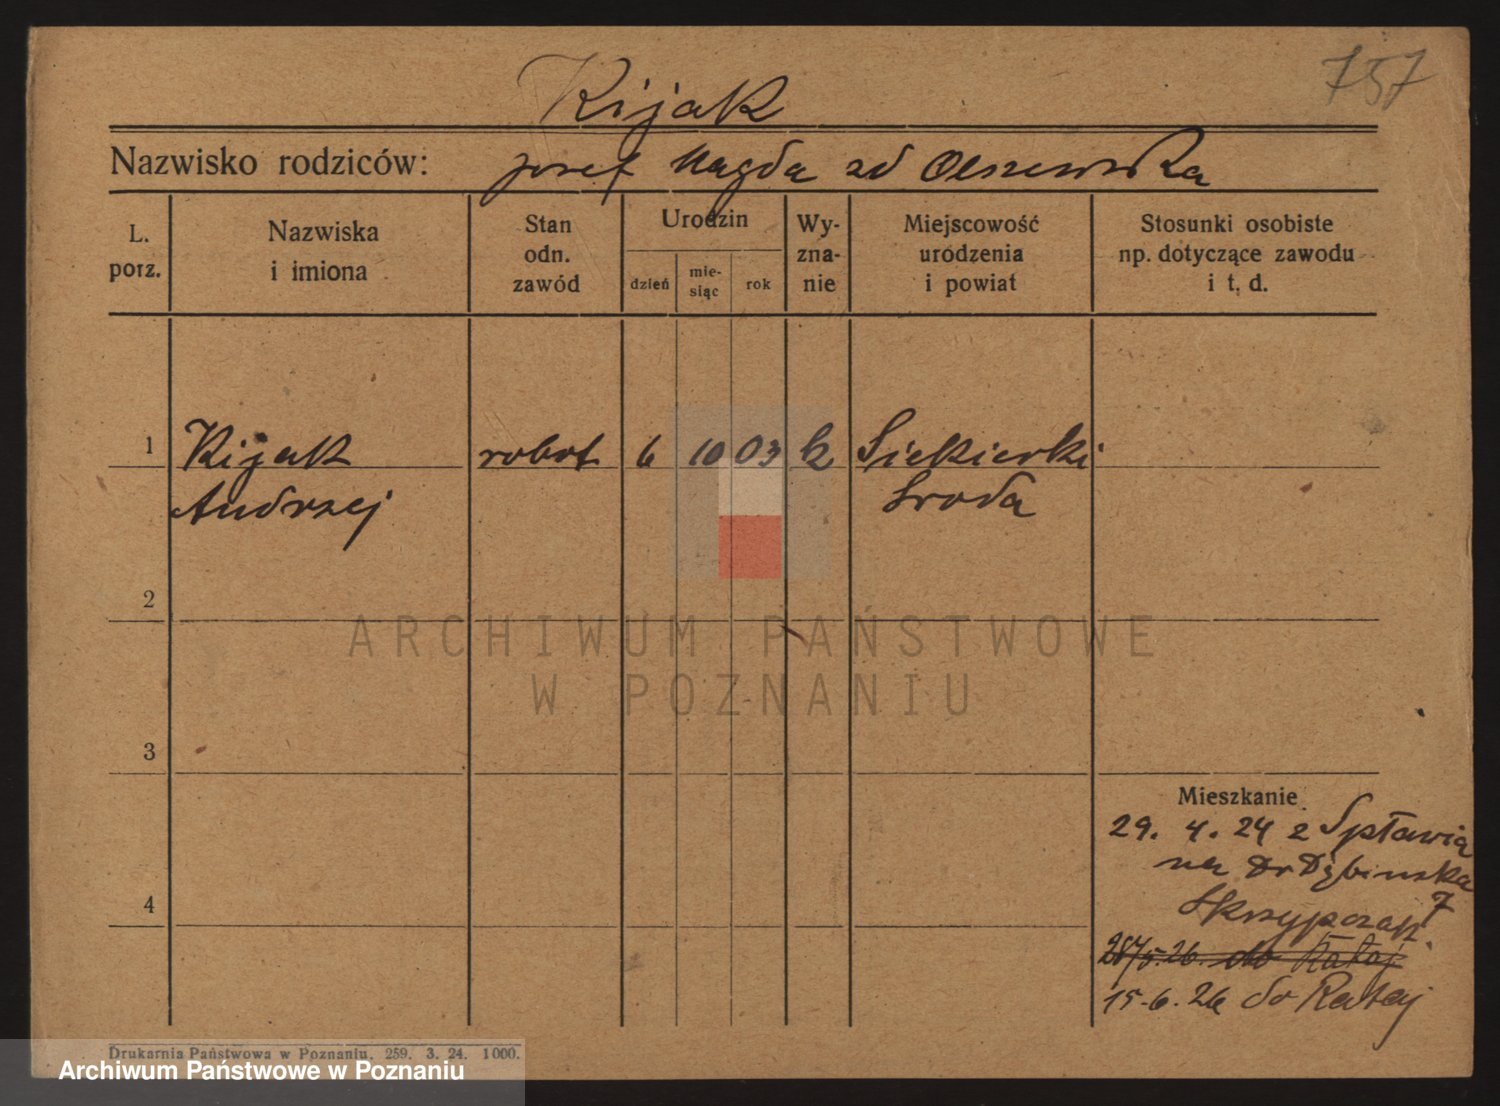 757
Kijak
Nazwisko rodziców: Josef Magda zd Olszewska
L. porz.
Nazwiska i imiona
Stan odn. zawód
Urodzin
dzień
mie-siąc
rok
Wy-zna-nie
Miejscowość urodzenia i powiat
Stosunki osobiste np. dotyczące zawodu i t. d.
1 Kijak robot 6 10 03 k Siekierki
Andrzej Sroda
2
3
4
Mieszkanie
29. 4. 24 z Spławia
na Dr Dębinska
7
Skrzypczak
28/5.26. do Rataj
15.6.26 do Rataj
ARCHIWUM PAŃSTWOWE
W POZNANIU
Drukarnia Państwowa w Poznaniu. 259. 3. 24. 1000.
Archiwum Państwowe w Poznaniu